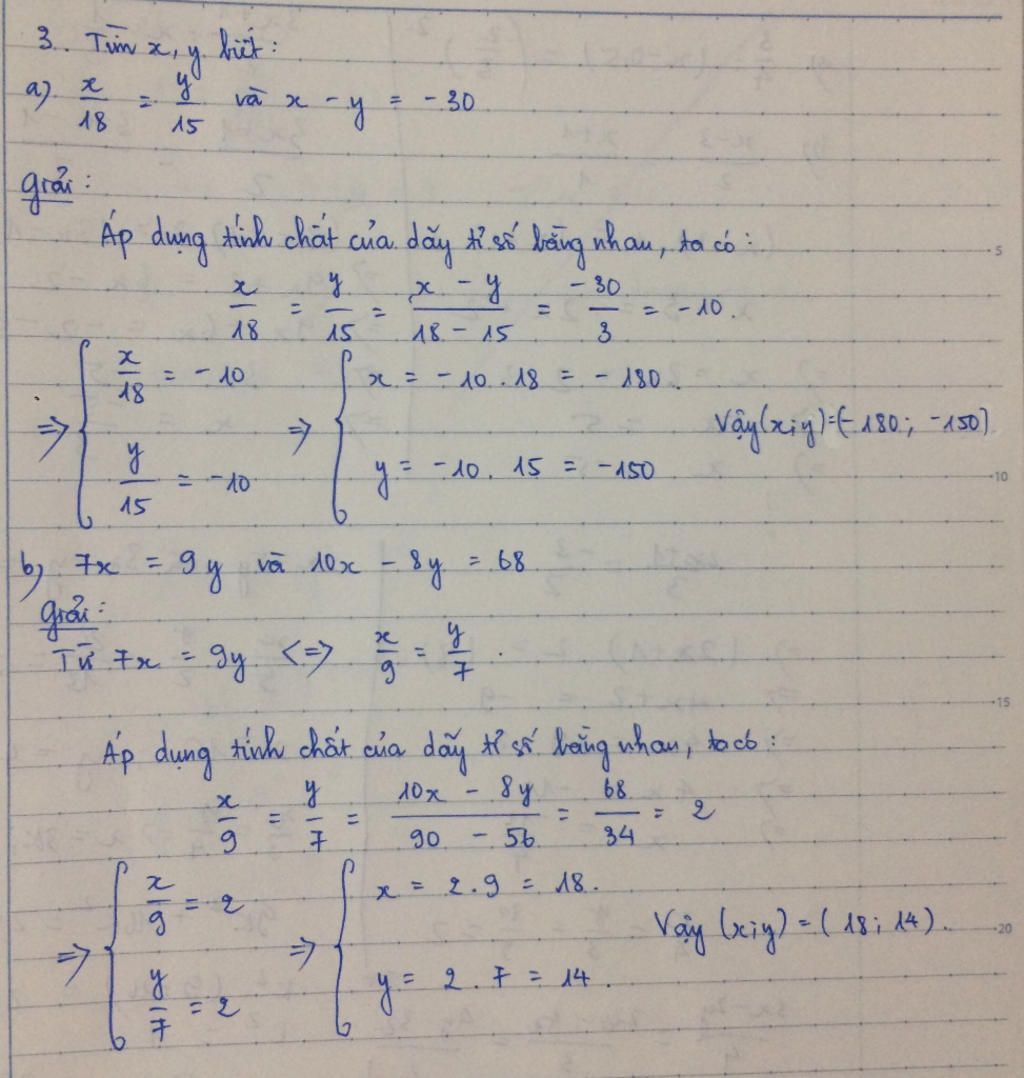 3. Tìm x, y biết:
a) x/18 = y/15 và x - y = -30
Giải:
Áp dụng tính chất của dãy tỉ số bằng nhau, ta có:
x/18 = y/15 = (x - y)/(18 - 15) = -30/3 = -10.
=> { x/18 = -10 => { x = -10 . 18 = -180.
Vậy (x;y) = (-180; -150)
y/15 = -10 y = -10 . 15 = -150
b) 7x = 9y và 10x - 8y = 68
Giải:
Từ 7x = 9y <=> x/9 = y/7.
Áp dụng tính chất của dãy tỉ số bằng nhau, ta có:
x/9 = y/7 = (10x - 8y)/(90 - 56) = 68/34 = 2
=> { x/9 = 2 => { x = 2.9 = 18.
Vậy (x;y) = (18; 14).
y/7 = 2 y = 2 . 7 = 14.
5
10
15
20